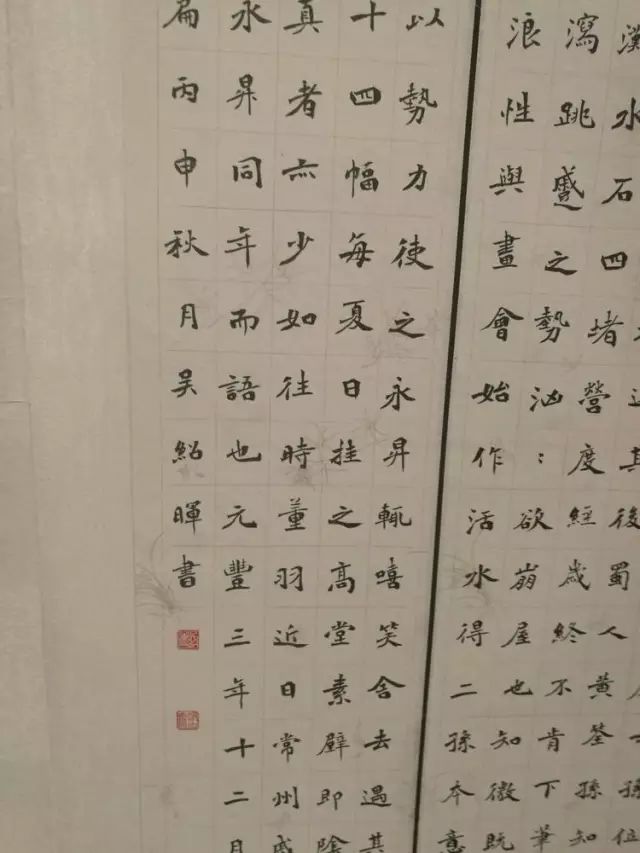 其後蜀人黃筌孫知
灘水石四堵營度經歲終不肯下筆
瀉跳蹙之勢汹：欲崩屋也知微既
浪性與畫會始作活水得二孫本意
以勢力使之永昇輒嘻笑舍去遇其
十四幅每夏日挂之高堂素壁即陰
真者亦少如往時董羽近日常州戚
永昇同年而語也元豐三年十二月
扁丙申秋月吴紹暉書